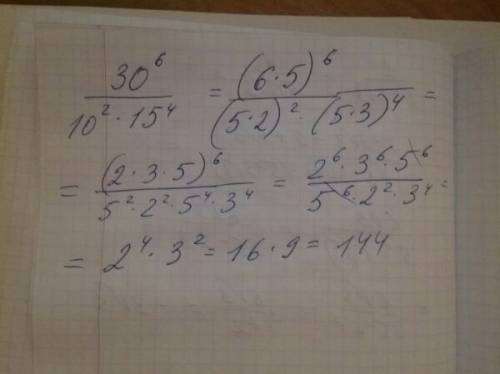 30⁶ / 10² · 15⁴ = (6·5)⁶ / (5·2)² · (5·3)⁴ =
= (2·3·5)⁶ / 5²·2²·5⁴·3⁴ = 2⁶·3⁶·5⁶ / 5⁶·2²·3⁴ =
= 2⁴·3² = 16·9 = 144